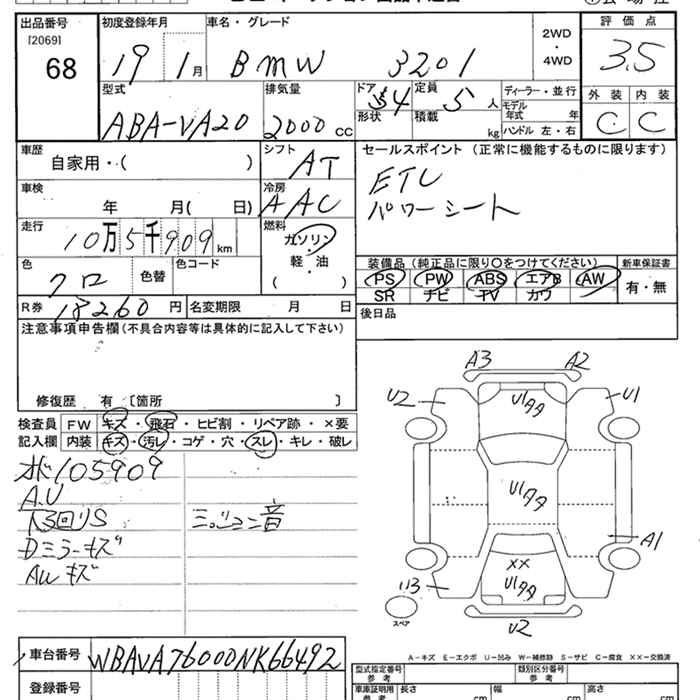 出品番号 初度登録年月 車名・グレード 評価点
[2069]
68 19 1月 BMW 320i 2WD・4WD 3.5
型式 排気量 ドア 定員 ディーラー・並行 外装 内装
ABA-VA20 2000cc 4 5人 モデル年式 年 C C
形状 積載 kg ハンドル 左・右
車歴 シフト セールスポイント(正常に機能するものに限ります)
自家用・( ) AT ETC
車検 冷房 パワーシート
年 月( 日) AAC
走行 燃料
10万5千909km ガソリン・軽・油( )
色 色替 色コード 装備品(純正品に限り○をつけてください) 新車保証書
クロ PS PW ABS エアB AW 有・無
SR ナビ TV カワ
R券 18260円 名変期限 月 日 後日品
注意事項申告欄(不具合内容等は具体的に記入して下さい)
修復歴 有 〔箇所 〕
検査員 FW キズ・飛石・ヒビ割・リペア跡・×要
記入欄 内装 キズ・汚レ・コゲ・穴・スレ・キレ・破レ
105909
A.U
回りS 音
Dミラーキズ
AWキズ
A3 A2
U2 U1アタ U1
U1アタ
A1
XX
U1アタ
U3
U2
スペア
A-キズ E-エクボ U-凹み W-補修跡 S-サビ C-腐食 XX-交換済
車台番号 WBAVA76000NK66492
型式指定番号 類別区分番号
参考 参考
登録番号 車庫証明用 長さ 幅 高さ
参考 cm cm cm